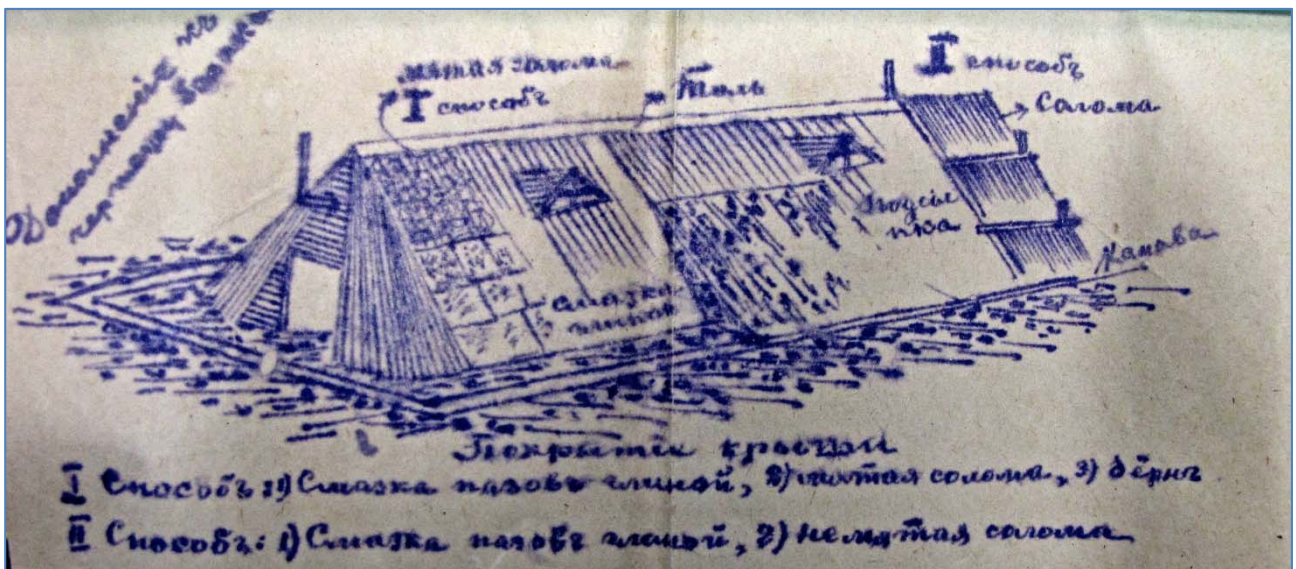 Дополненіе къ
чертежу
мятая солома
I способъ
Толь
II способъ
Солома
Подсы
пка
Смазка
глиной
Канава
Покрытіе крыши
I Способъ: 1) Смазка пазовъ глиной, 2) мятая солома, 3) дёрнъ
II Способъ: 1) Смазка пазовъ глиной, 2) не мятая солома